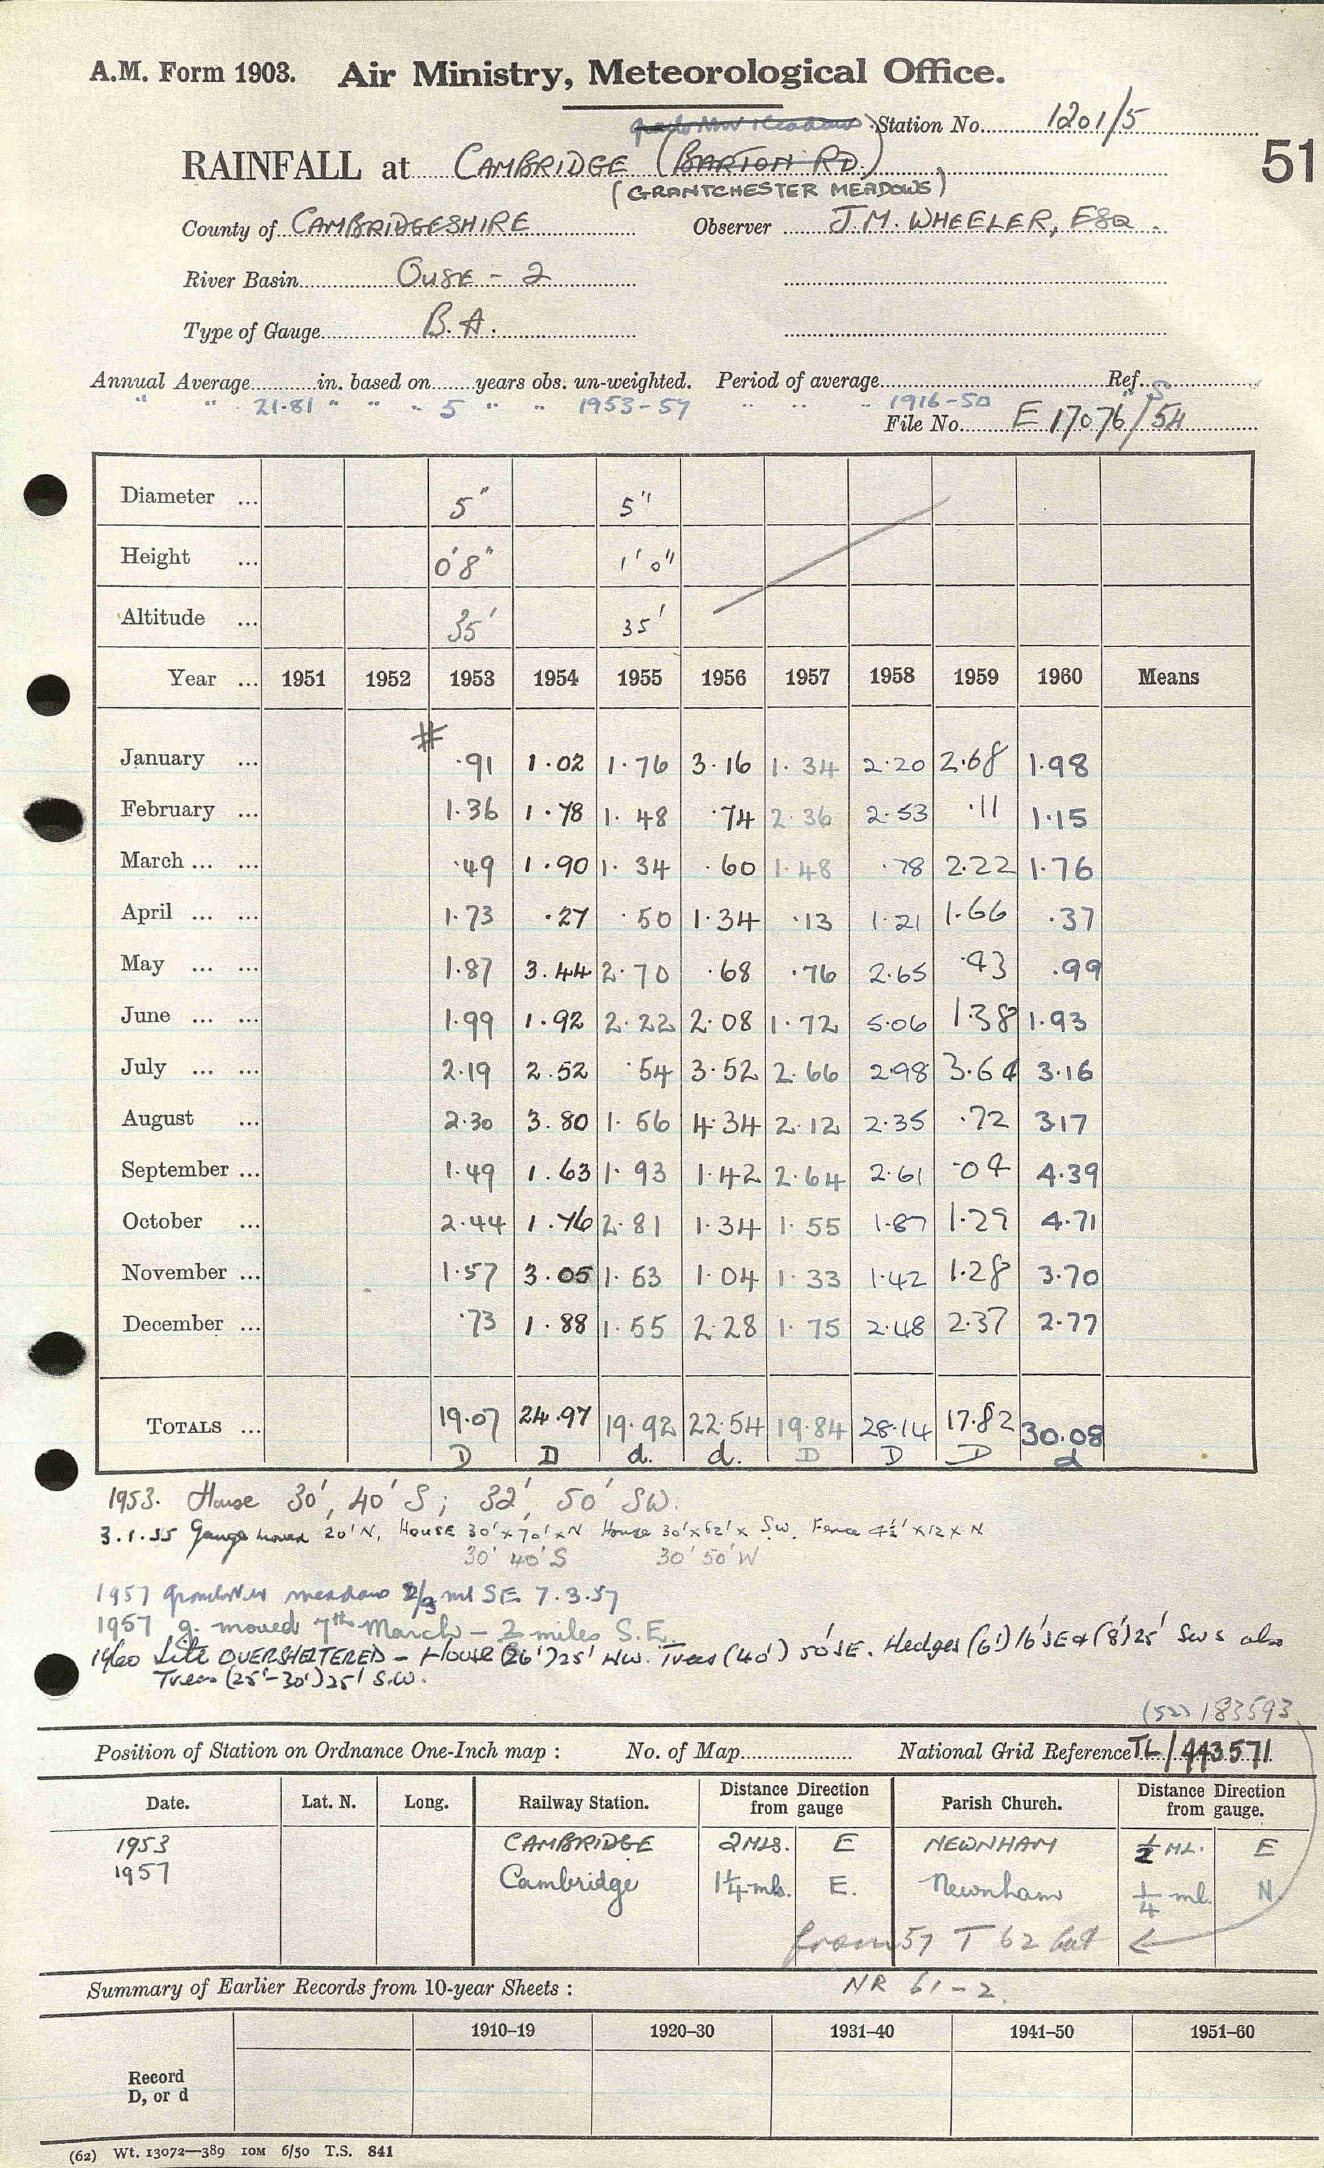 A.M. Form 1903. Air Ministry, Meteorological Office.
Station No. 1201/5
51
RAINFALL at CAMBRIDGE (BARTON RD.)
(GRANTCHESTER MEADOWS)
County of CAMBRIDGESHIRE Observer J.M. WHEELER, ESQ.
River Basin OUSE - 2
Type of Gauge B.A.
Annual Average in. based on years obs. un-weighted. Period of average Ref.
" " 21.81 " " " 5 " " 1953-57 " " " 1916-50 " S
File No. E 17076/54
Diameter ... 5" 5"
Height ... 0'8" 1'0"
Altitude ... 35' 35'
Year ... 1951 1952 1953 1954 1955 1956 1957 1958 1959 1960 Means
#
January ... .91 1.02 1.76 3.16 1.34 2.20 2.68 1.98
February ... 1.36 1.78 1.48 .74 2.36 2.53 .11 1.15
March ... ... .49 1.90 1.34 .60 1.48 .78 2.22 1.76
April ... ... 1.73 .27 .50 1.34 .13 1.21 1.66 .37
May ... ... 1.87 3.44 2.70 .68 .76 2.65 .43 .99
June ... ... 1.99 1.92 2.22 2.08 1.72 5.06 1.38 1.93
July ... ... 2.19 2.52 .54 3.52 2.66 2.98 3.64 3.16
August ... 2.30 3.80 1.56 4.34 2.12 2.35 .72 3.17
September ... 1.49 1.63 1.93 1.42 2.64 2.61 .04 4.39
October ... 2.44 1.76 2.81 1.34 1.55 1.87 1.29 4.71
November ... 1.57 3.05 1.53 1.04 1.33 1.42 1.28 3.70
December ... .73 1.88 1.55 2.28 1.75 2.48 2.37 2.77
TOTALS ... 19.07 24.97 19.92 22.54 19.84 28.14 17.82 30.08
D D d. d. D D D d
1953. House 30', 40' S; 32', 50' SW.
3.1.55 Gauge moved 20' N, House 30' x 70' x N House 30' x 62' x SW. Fence 4½' x 12 x N
30' 40' S 30' 50' W
1957 meadow 2/3 ml SE 7.3.57
1957 g. moved 7th March - miles S.E.
1960 Site OVERSHELTERED - House (26') 25' NW. Trees (40') 50' SE. Hedges (6') 16' SE & (8') 25' SW & also
Trees (25'-30') 25' S.W.
(52) 183593
Position of Station on Ordnance One-Inch map : No. of Map National Grid Reference TL/443571
Date. Lat. N. Long. Railway Station. Distance Direction from gauge Parish Church. Distance Direction from gauge.
1953 CAMBRIDGE 2 MLS. E NEWNHAM ½ ML. E
1957 Cambridge 1¼ mls. E. Newnham ¼ ml. N.
from 57 T 62 but
Summary of Earlier Records from 10-year Sheets : NR 61-2.
1910–19 1920–30 1931–40 1941–50 1951–60
Record
D, or d
(62) Wt. 13072—389 10M 6/50 T.S. 841